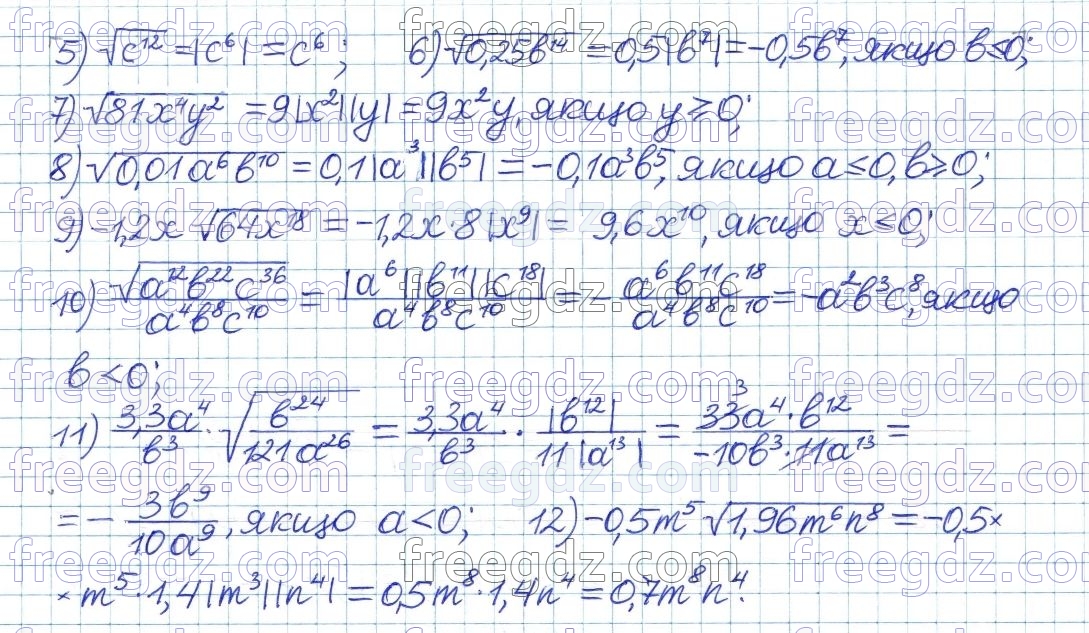 5) √c¹² = |c⁶| = c⁶; 6) √0,25b¹⁴ = 0,5|b⁷| = -0,5b⁷, якщо b ≤ 0;
7) √81x⁴y² = 9|x²||y| = 9x²y, якщо y ≥ 0;
8) √0,01a⁶b¹⁰ = 0,1|a³||b⁵| = -0,1a³b⁵, якщо a ≤ 0, b ≥ 0;
9) -1,2x √64x¹⁸ = -1,2x · 8|x⁹| = 9,6x¹⁰, якщо x ≤ 0;
10) √a¹²b²²c³⁶ / a⁴b⁸c¹⁰ = |a⁶||b¹¹||c¹⁸| / a⁴b⁸c¹⁰ = - a⁶b¹¹c¹⁸ / a⁴b⁸c¹⁰ = -a²b³c⁸, якщо
b < 0;
11) 3,3a⁴ / b³ · √(b²⁴ / 121a²⁶) = 3,3a⁴ / b³ · |b¹²| / 11|a¹³| = 33³a⁴ · b¹² / -10b³ · 11a¹³ =
= - 3b⁹ / 10a⁹, якщо a < 0; 12) -0,5m⁵ √1,96m⁶n⁸ = -0,5×
× m⁵ · 1,4|m³||n⁴| = 0,5m⁸ · 1,4n⁴ = 0,7m⁸n⁴.
freegdz.com